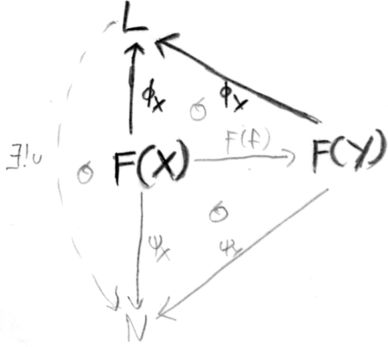 L
ϕₓ ϕₓ
∃!u F(X) F(f) F(Y)
ψₓ
N